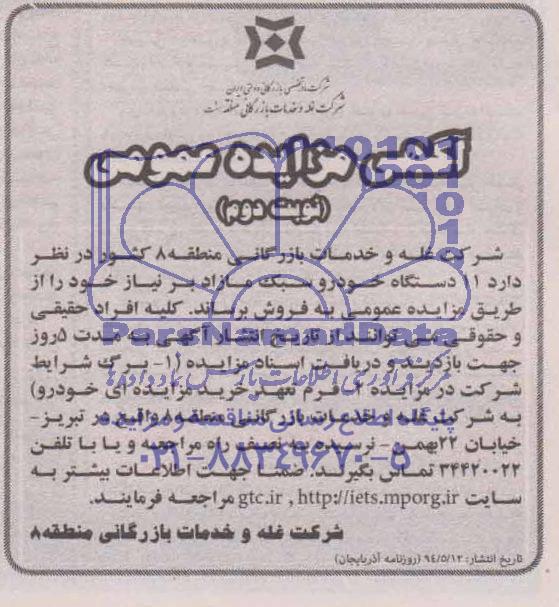 شرکت مادر تخصصی بازرگانی دولتی ایران
شرکت غله و خدمات بازرگانی منطقه هشت
آگهی مزایده عمومی
(نوبت دوم)
شرکت غله و خدمات بازرگانی منطقه ۸ کشور در نظر
دارد ۱۱ دستگاه خودرو سبک مازاد بر نیاز خود را از
طریق مزایده عمومی به فروش برساند. کلیه افراد حقیقی
و حقوقی می توانند از تاریخ انتشار آگهی به مدت ۵ روز
جهت بازدید و دریافت اسناد مزایده (۱- برگ شرایط
شرکت در مزایده ۲- فرم تعهد خرید مزایده ای خودرو)
به شرکت غله و خدمات بازرگانی منطقه ۸ واقع در تبریز -
خیابان ۲۲بهمن - نرسیده به نصف راه مراجعه و یا با تلفن
۳۴۴۲۰۰۲۲ تماس بگیرند. ضمنا جهت اطلاعات بیشتر به
سایت gtc.ir , http://iets.mporg.ir مراجعه فرمایند.
شرکت غله و خدمات بازرگانی منطقه۸
تاریخ انتشار: ۹۴/۵/۱۲ (روزنامه آذربایجان)
ParsNamadData
مرکز فرآوری اطلاعات پارس نماد داده ها
پایگاه اطلاع رسانی مناقصه و مزایده
۰۲۱-۸۸۳۴۹۶۷۰-۵